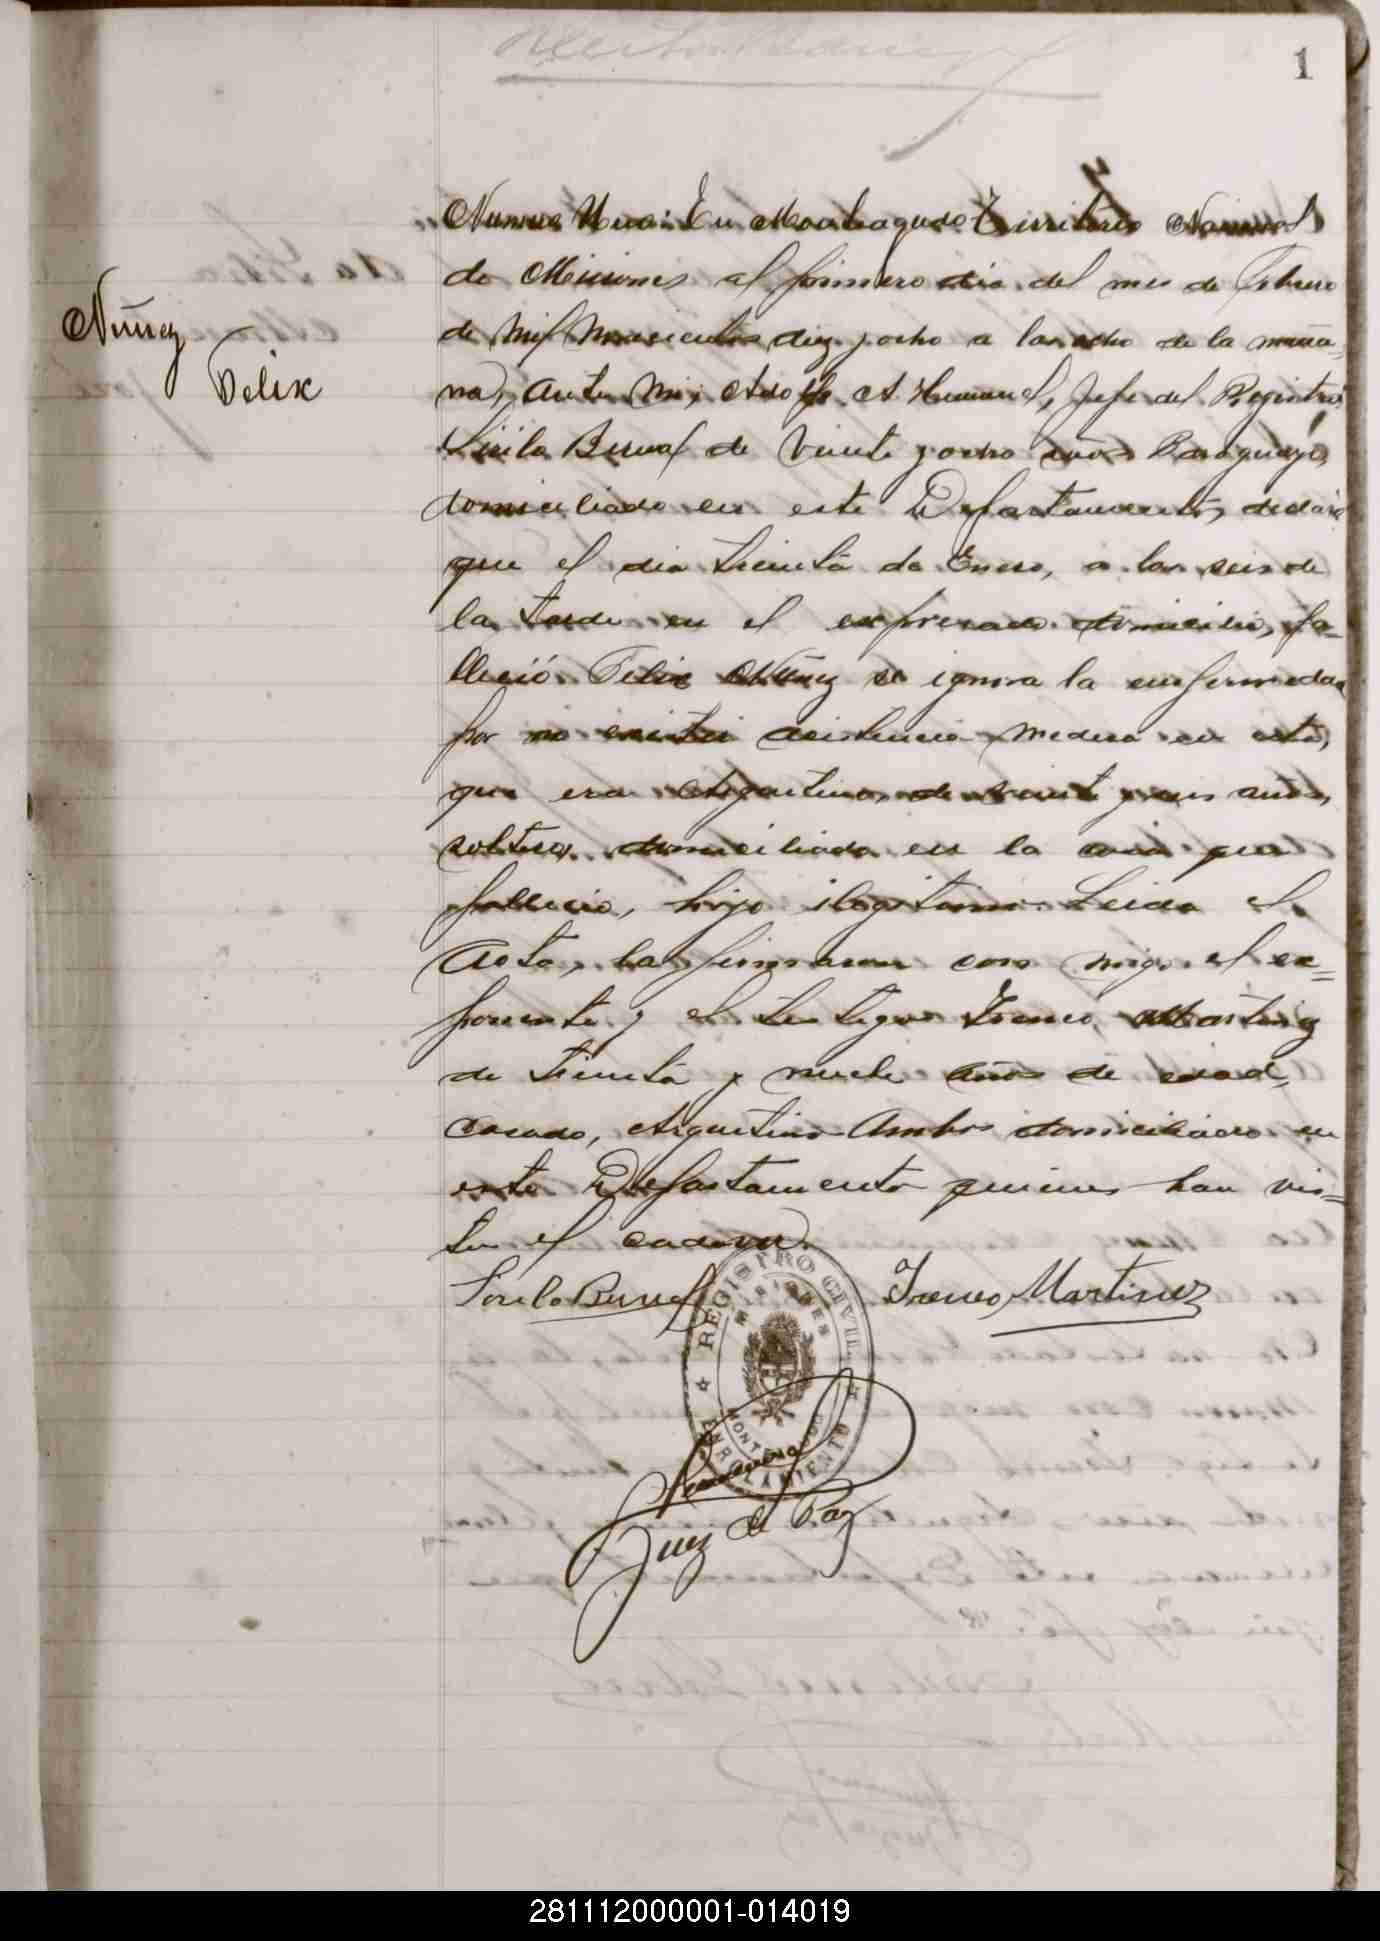 1
Nuñez
Felix
Numero Uno: En Monteagudo Territorio Nacional
de Misiones al primero dia del mes de Febrero
de mil novecientos diez y ocho a las ocho de la maña-
na, ante mi, Adolfo A. Jefe del Registro,
Bernal de veinte y ocho años Paraguayo,
domiciliado en este Departamento, declaró
que el dia treinta de Enero, a las seis de
la tarde en el expresado domicilio, fa-
lleció Felix Nuñez se ignora la enfermedad
por no existir asistencia medica en esta,
que era Argentino, de veinte y seis años,
soltero, domiciliado en la casa que
fallecio, hijo ilegitimo. Leida el
Acta, la firmaron con migo el ex=
ponente y el testigo Ireneo Martinez
de treinta y nueve años de edad,
casado, Argentino Ambos domiciliados en
este Departamento quienes han vis=
to el cadaver.
Bernal
Ireneo Martinez
REGISTRO CIVIL
MISIONES
MONTEAGUDO
ENROLAMIENTO
Juez de Paz
281112000001-014019